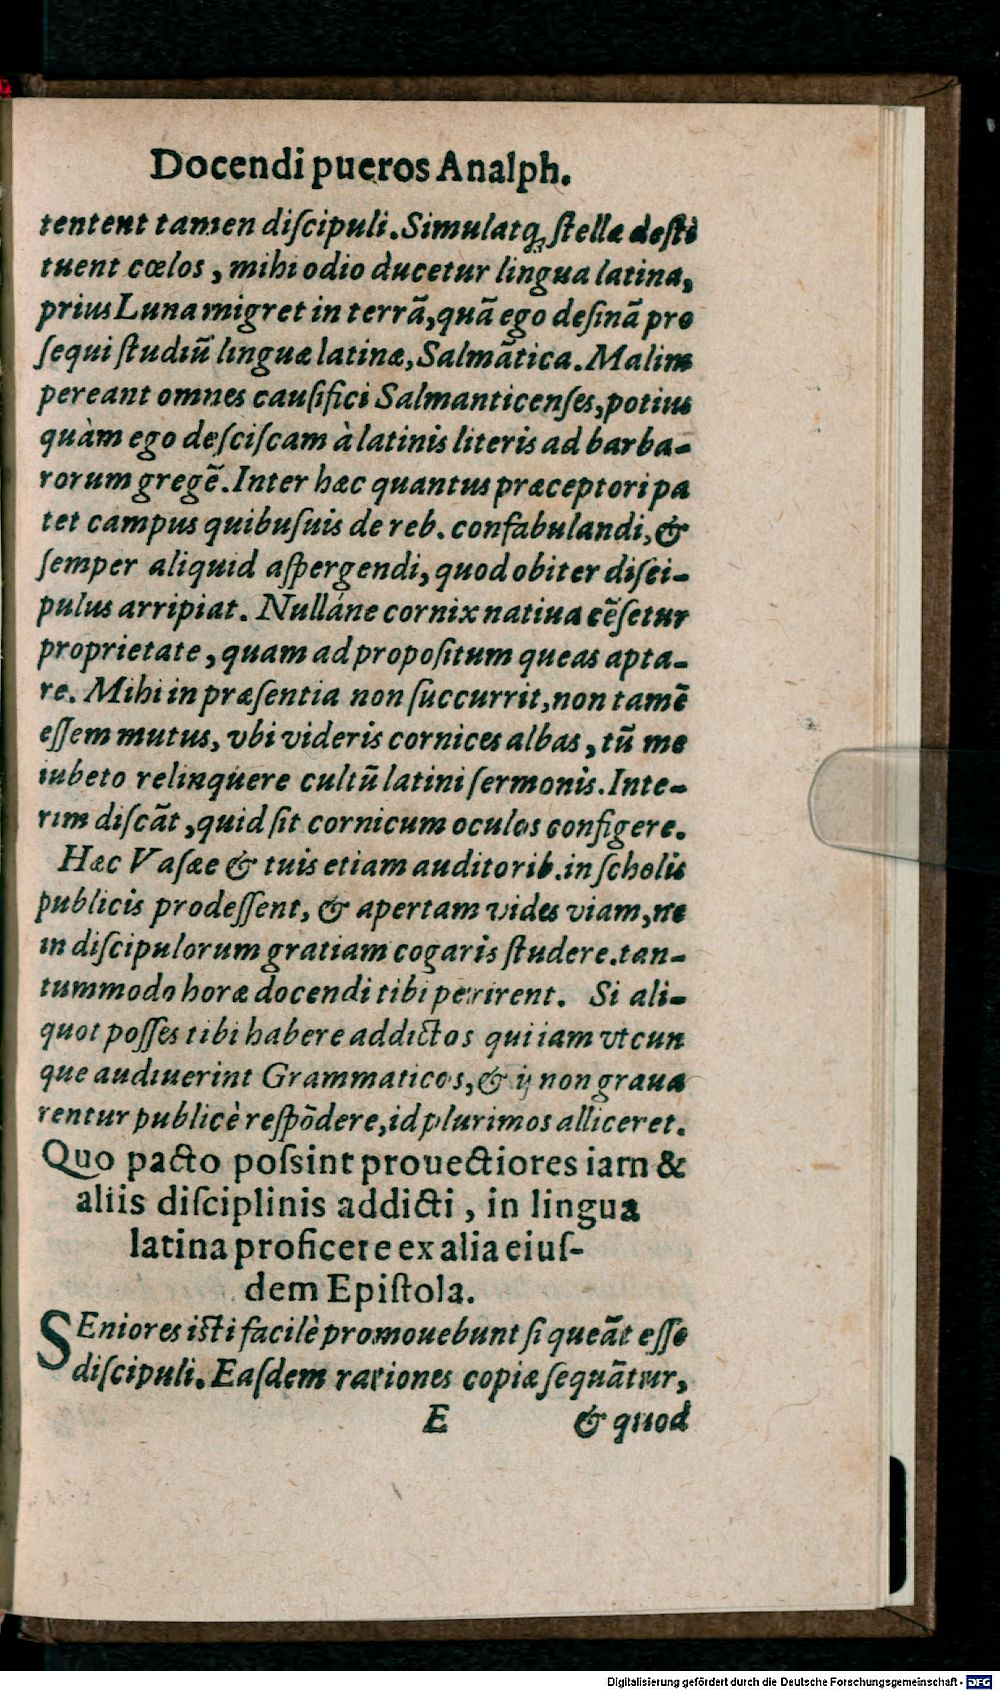 Docendi pueros Analph.
tentent tamen diſcipuli. Simulatq́; ſtellæ deſti
tuent cœlos, mihi odio ducetur lingua latina,
prius Luna migret in terrã, quã ego deſinã pro
ſequi ſtudiũ linguæ latinæ, Salmãtica. Malim
pereant omnes cauſifici Salmanticenſes, potius
quàm ego deſciſcam à latinis literis ad barba-
rorum gregẽ. Inter hæc quantus præceptori pa
tet campus quibuſuis de reb. confabulandi, &
ſemper aliquid aſpergendi, quod obiter diſci-
pulus arripiat. Nulláne cornix natiua cẽſetur
proprietate, quam ad propoſitum queas apta-
re. Mihi in præſentia non ſuccurrit, non tamẽ
eſſem mutus, vbi videris cornices albas, tũ me
iubeto relinquere cultũ latini ſermonis. Inte-
rim diſcãt, quid ſit cornicum oculos configere.
Hæc Vaſæe & tuis etiam auditorib. in ſcholis
publicis prodeſſent, & apertam vides viam, ne
in diſcipulorum gratiam cogaris ſtudere. tan-
tummodo horæ docendi tibi perirent. Si ali-
quot poſſes tibi habere addictos qui iam vtcun
que audiuerint Grammaticos, & ij non graua
rentur publicè reſpõdere, id plurimos alliceret.
Quo pacto poſsint prouectiores iam &
aliis diſciplinis addicti, in lingua
latina proficere ex alia eiuſ-
dem Epiſtola.
SEniores iſti facilè promouebunt ſi queãt eſſe
diſcipuli. Eaſdem rationes copiæ ſequãtur,
E & quod
Digitalisierung gefördert durch die Deutsche Forschungsgemeinschaft - DFG